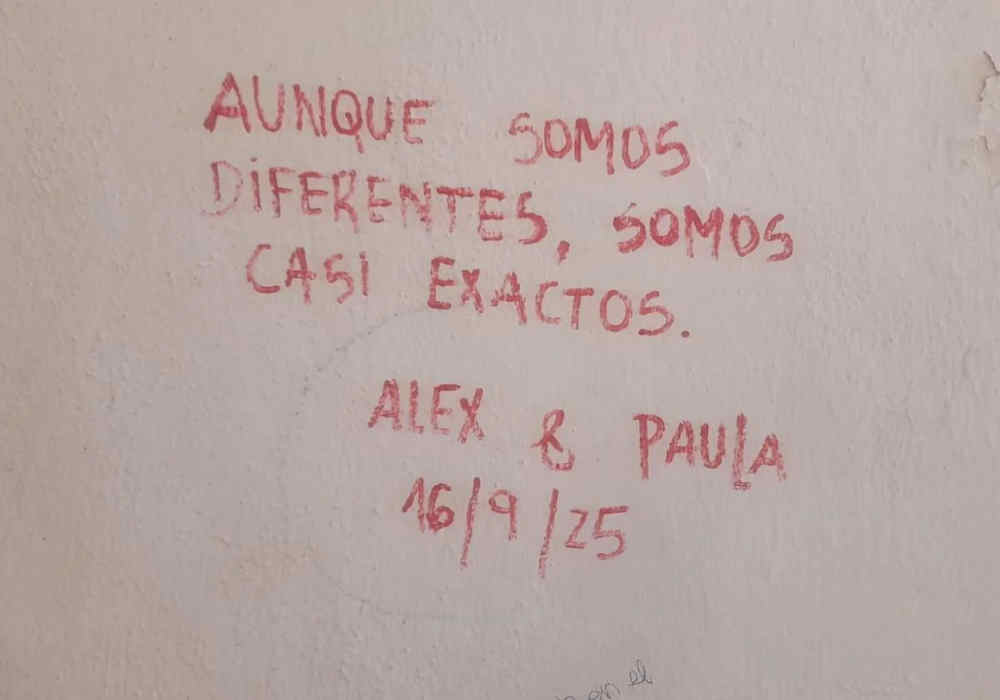 AUNQUE SOMOS
DIFERENTES, SOMOS
CASI EXACTOS.
ALEX & PAULA
16/9/25
en el